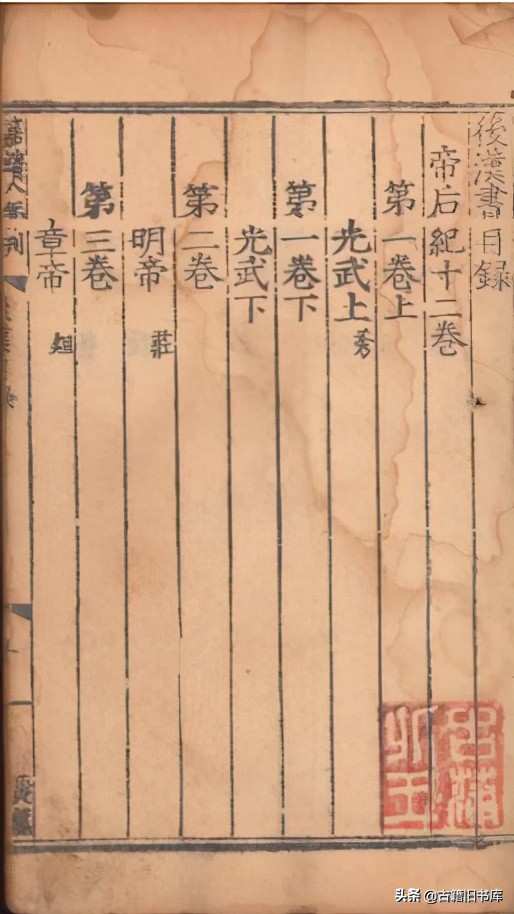 後漢書目録
帝后紀十二卷
第一卷上
光武上 秀
第一卷下
光武下
第二卷
明帝 莊
第三卷
章帝 炟
头条 @古籍旧书库